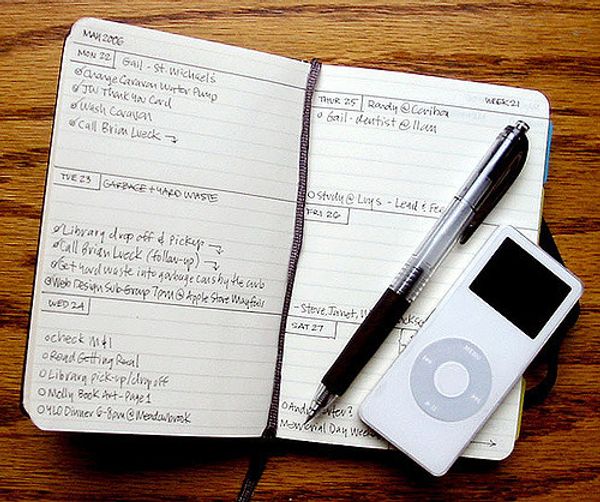 MAY 2006
MON 22 Gail - St. Michael's
Change Caravan Water Pump
JN Thank You Card
Wash Caravan
Call Brian Lueck →
TUE 23 GARBAGE + YARD WASTE
Library drop off & pickup →
Call Brian Lueck (follow-up) →
Get yard waste into garbage cans by the curb
Web Design Sub Group 7pm @ Apple Store Mayfair
WED 24
check M&I
Read Getting Real
Library pick-up/drop off
Molly Book Art - Page 1
YLO Dinner 6-8pm @ Meadowbrook
THUR 25 Randy @ Caribou WEEK 21
Gail - dentist @ 11am
Study @ Luy's - Lead &
FRI 26
- Steve, Janet,
SAT 27
Memorial Day
MENU